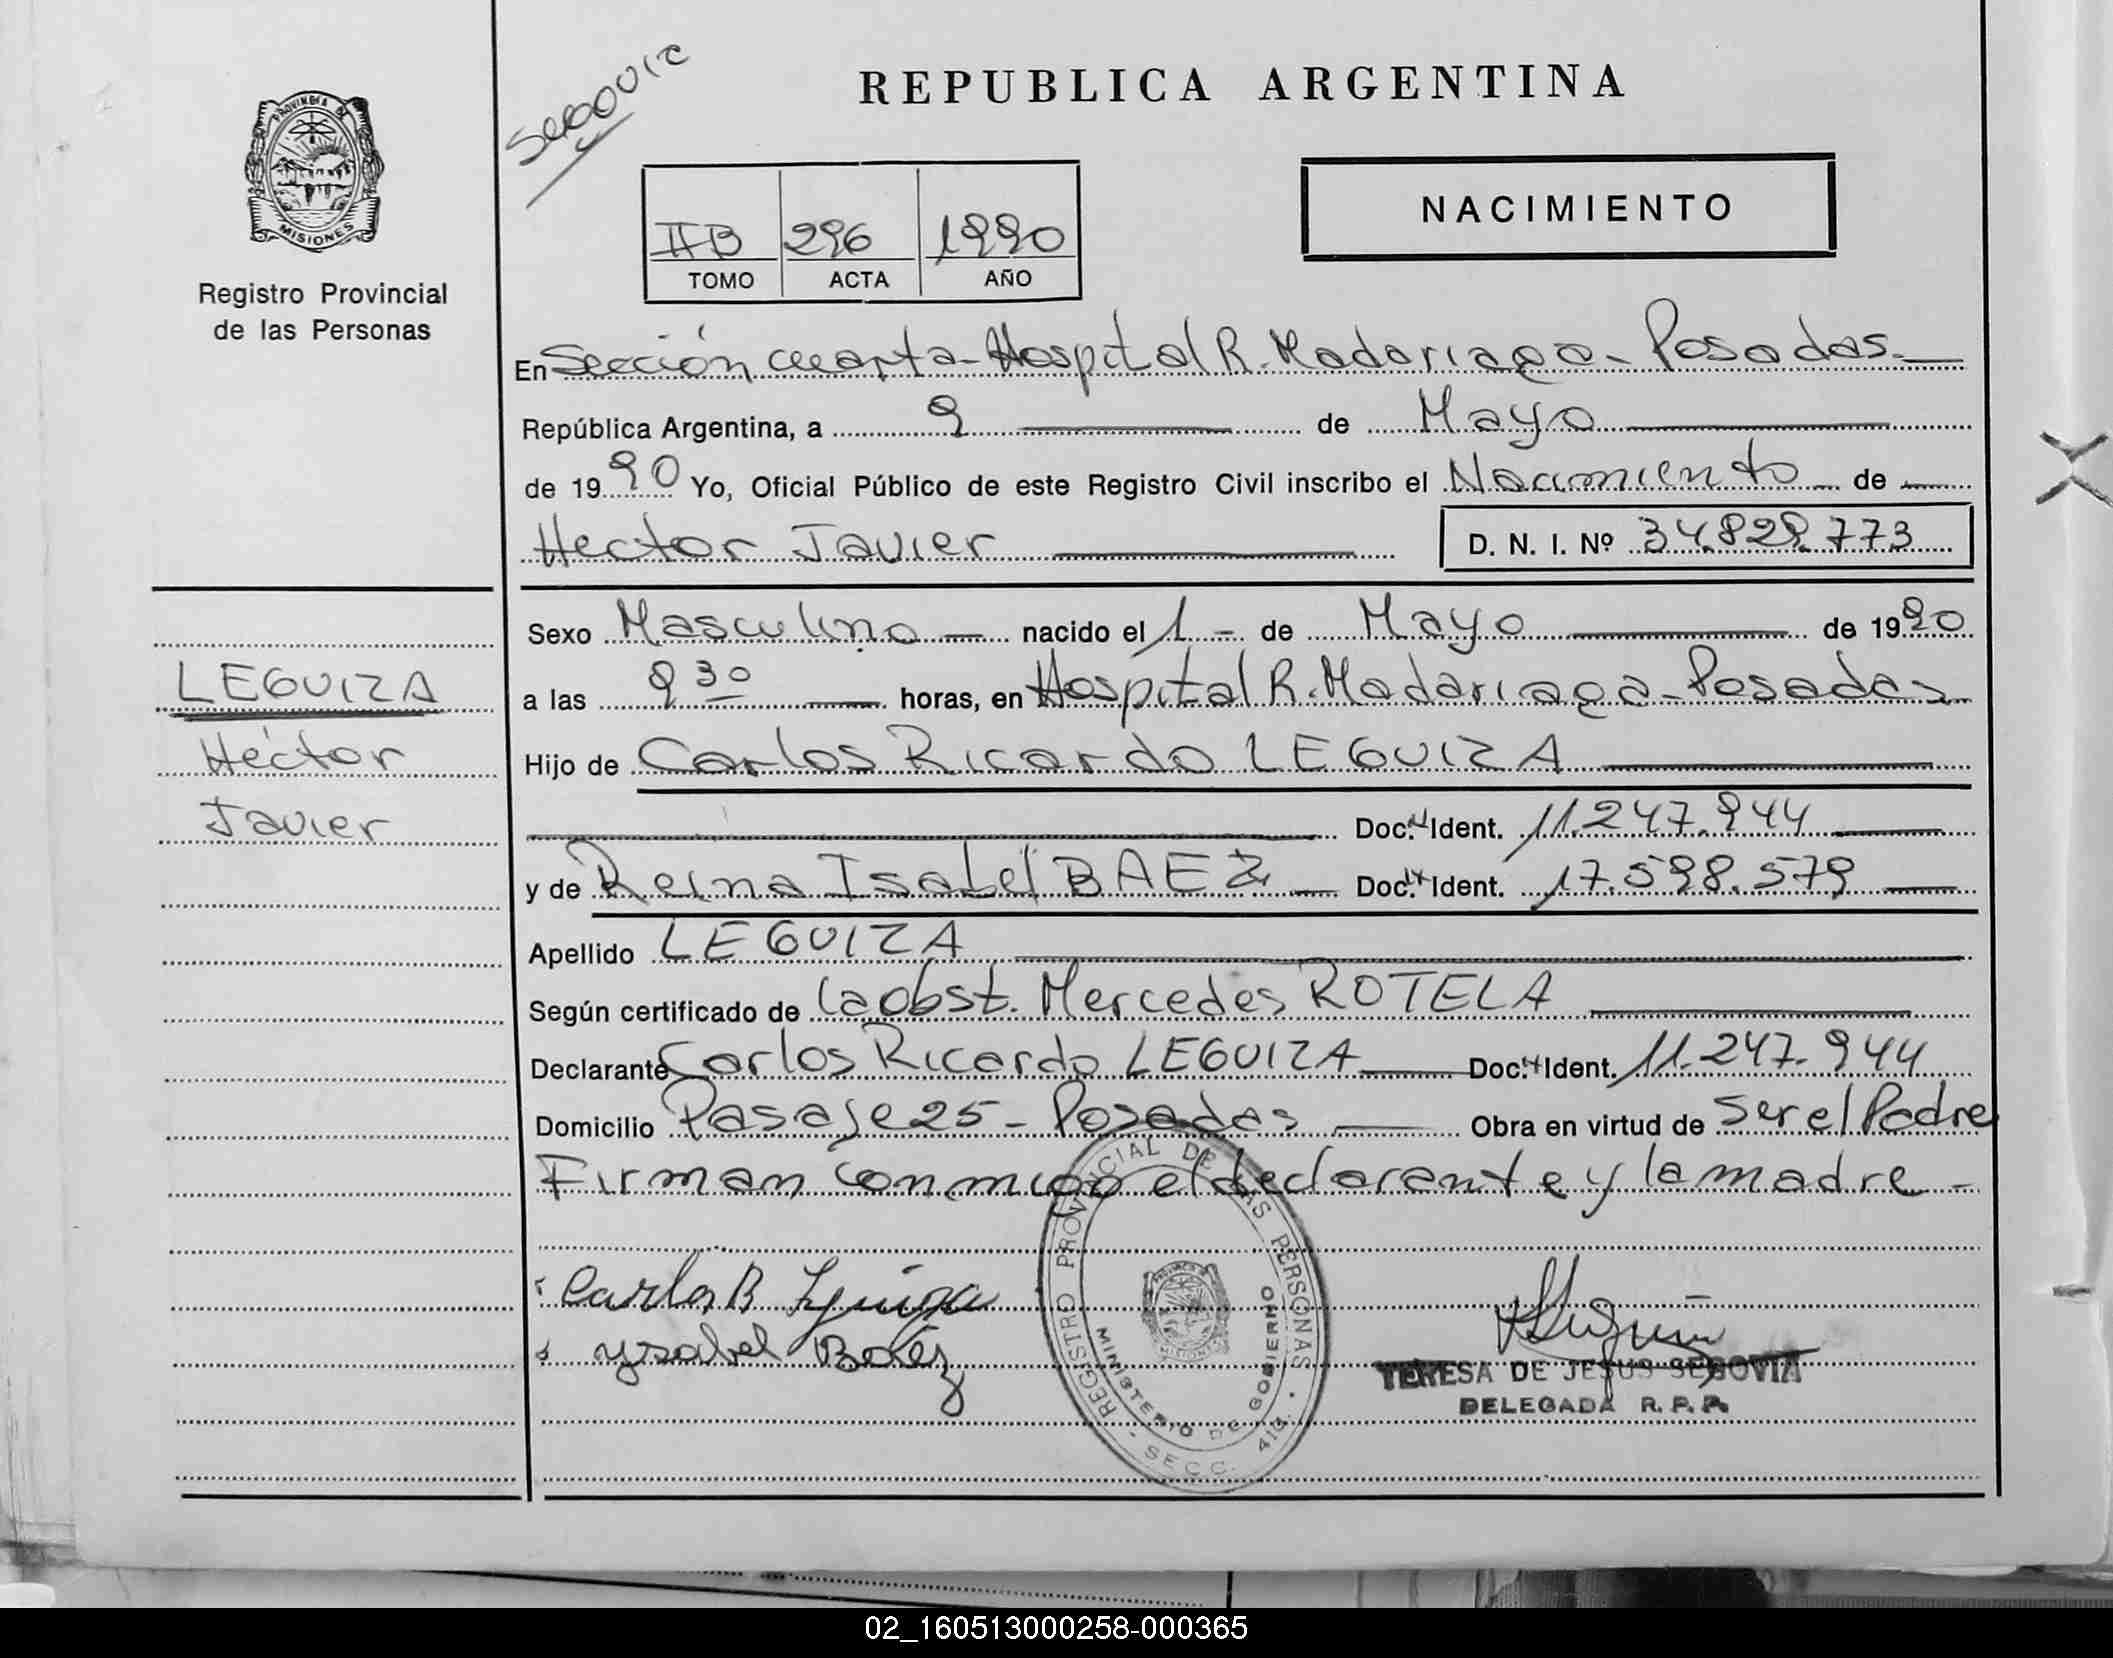 Segovia
REPUBLICA ARGENTINA
PROVINCIA DE
MISIONES
Registro Provincial
de las Personas
IIB 296 1990
TOMO ACTA AÑO
NACIMIENTO
En Sección cuarta - Hospital R. Madariaga - Posadas.
República Argentina, a 9 de Mayo
de 1990 Yo, Oficial Público de este Registro Civil inscribo el Nacimiento de
Hector Javier D. N. I. Nº 34.828.773
LEGUIZA
Héctor
Javier
Sexo Masculino nacido el 1 - de Mayo de 1990
a las 9 30 horas, en Hospital R. Madariaga - Posadas
Hijo de Carlos Ricardo LEGUIZA
Doc. Ident. 11.247.944
y de Reina Isabel BAEZ Doc. Ident. 17.598.579
Apellido LEGUIZA
Según certificado de la obst. Mercedes ROTELA
Declarante Carlos Ricardo LEGUIZA Doc. Ident. 11.247.944
Domicilio Pasaje 25 - Posadas Obra en virtud de ser el Padre
Firman conmigo el declarante y la madre -
Carlos R Leguiza
Ysabel Baez
REGISTRO PROVINCIAL DE LAS PERSONAS
MINISTERIO DE GOBIERNO
SECC. 4ta.
TERESA DE JESUS SEGOVIA
DELEGADA R. P. P.
02_160513000258-000365